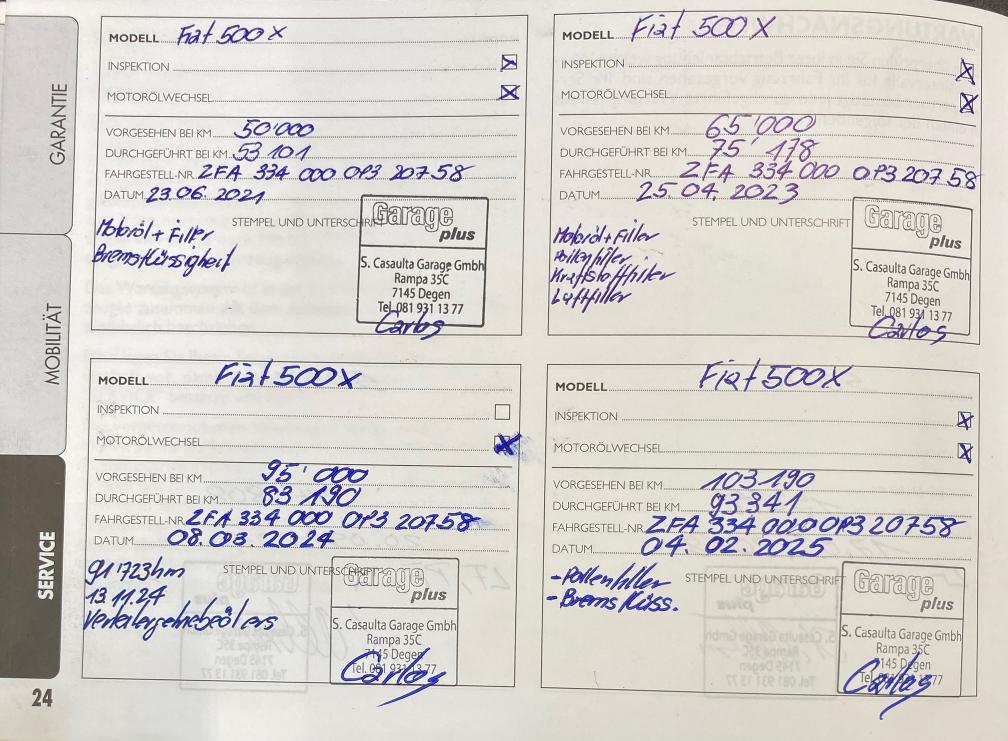 GARANTIE
MOBILITÄT
SERVICE
24
MODELL Fiat 500 X
INSPEKTION
MOTORÖLWECHSEL
VORGESEHEN BEI KM 50'000
DURCHGEFÜHRT BEI KM 53 101
FAHRGESTELL-NR. ZFA 334 000 0P3 207 58
DATUM 23.06.2021
STEMPEL UND UNTERSCHRIFT
Motoröl + Filter
Bremsflüssigkeit
Garage
plus
S. Casaulta Garage Gmbh
Rampa 35C
7145 Degen
Tel. 081 931 13 77
Carlos
MODELL Fiat 500 X
INSPEKTION
MOTORÖLWECHSEL
VORGESEHEN BEI KM 65'000
DURCHGEFÜHRT BEI KM 75'178
FAHRGESTELL-NR. ZFA 334 000 0P3 207 58
DATUM 25.04.2023
STEMPEL UND UNTERSCHRIFT
Motoröl + Filter
Pollenfilter
Kraftstofffilter
Luftfilter
Garage
plus
S. Casaulta Garage Gmbh
Rampa 35C
7145 Degen
Tel. 081 931 13 77
Carlos
MODELL Fiat 500X
INSPEKTION
MOTORÖLWECHSEL
VORGESEHEN BEI KM 95'000
DURCHGEFÜHRT BEI KM 83 190
FAHRGESTELL-NR. ZFA 334 000 0P3 20758
DATUM 08.03.2024
STEMPEL UND UNTERSCHRIFT
91'723km
13.11.24
Garage
plus
S. Casaulta Garage Gmbh
Rampa 35C
7145 Degen
Tel. 081 931 13 77
Carlos
MODELL Fiat 500X
INSPEKTION
MOTORÖLWECHSEL
VORGESEHEN BEI KM 103 190
DURCHGEFÜHRT BEI KM 93 341
FAHRGESTELL-NR. ZFA 334 0000P3 20758
DATUM 04.02.2025
STEMPEL UND UNTERSCHRIFT
- Pollenfilter
- Bremsflüss.
Garage
plus
S. Casaulta Garage Gmbh
Rampa 35C
7145 Degen
Tel. 081 931 13 77
Carlos